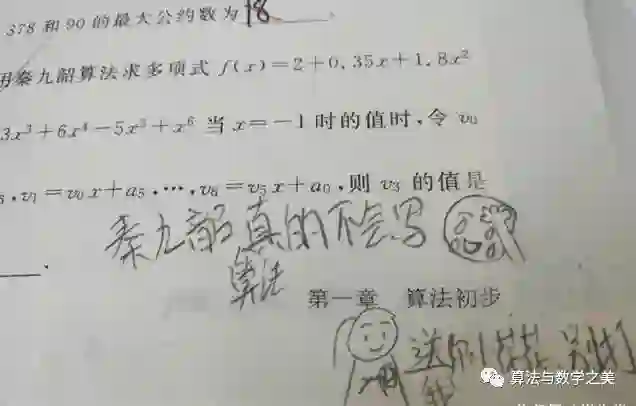 378 和 90 的最大公约数为 18
用秦九韶算法求多项式 f(x)=2+0.35x+1.8x²
3x³+6x⁴-5x⁵+x⁶ 当 x=-1 时的值时,令 v₀
,v₁=v₀x+a₅,…,v₆=v₅x+a₀,则 v₃ 的值是
秦九韶真的不会写
算法
第一章 算法初步
送你1花花 别打
我
算法与数学之美